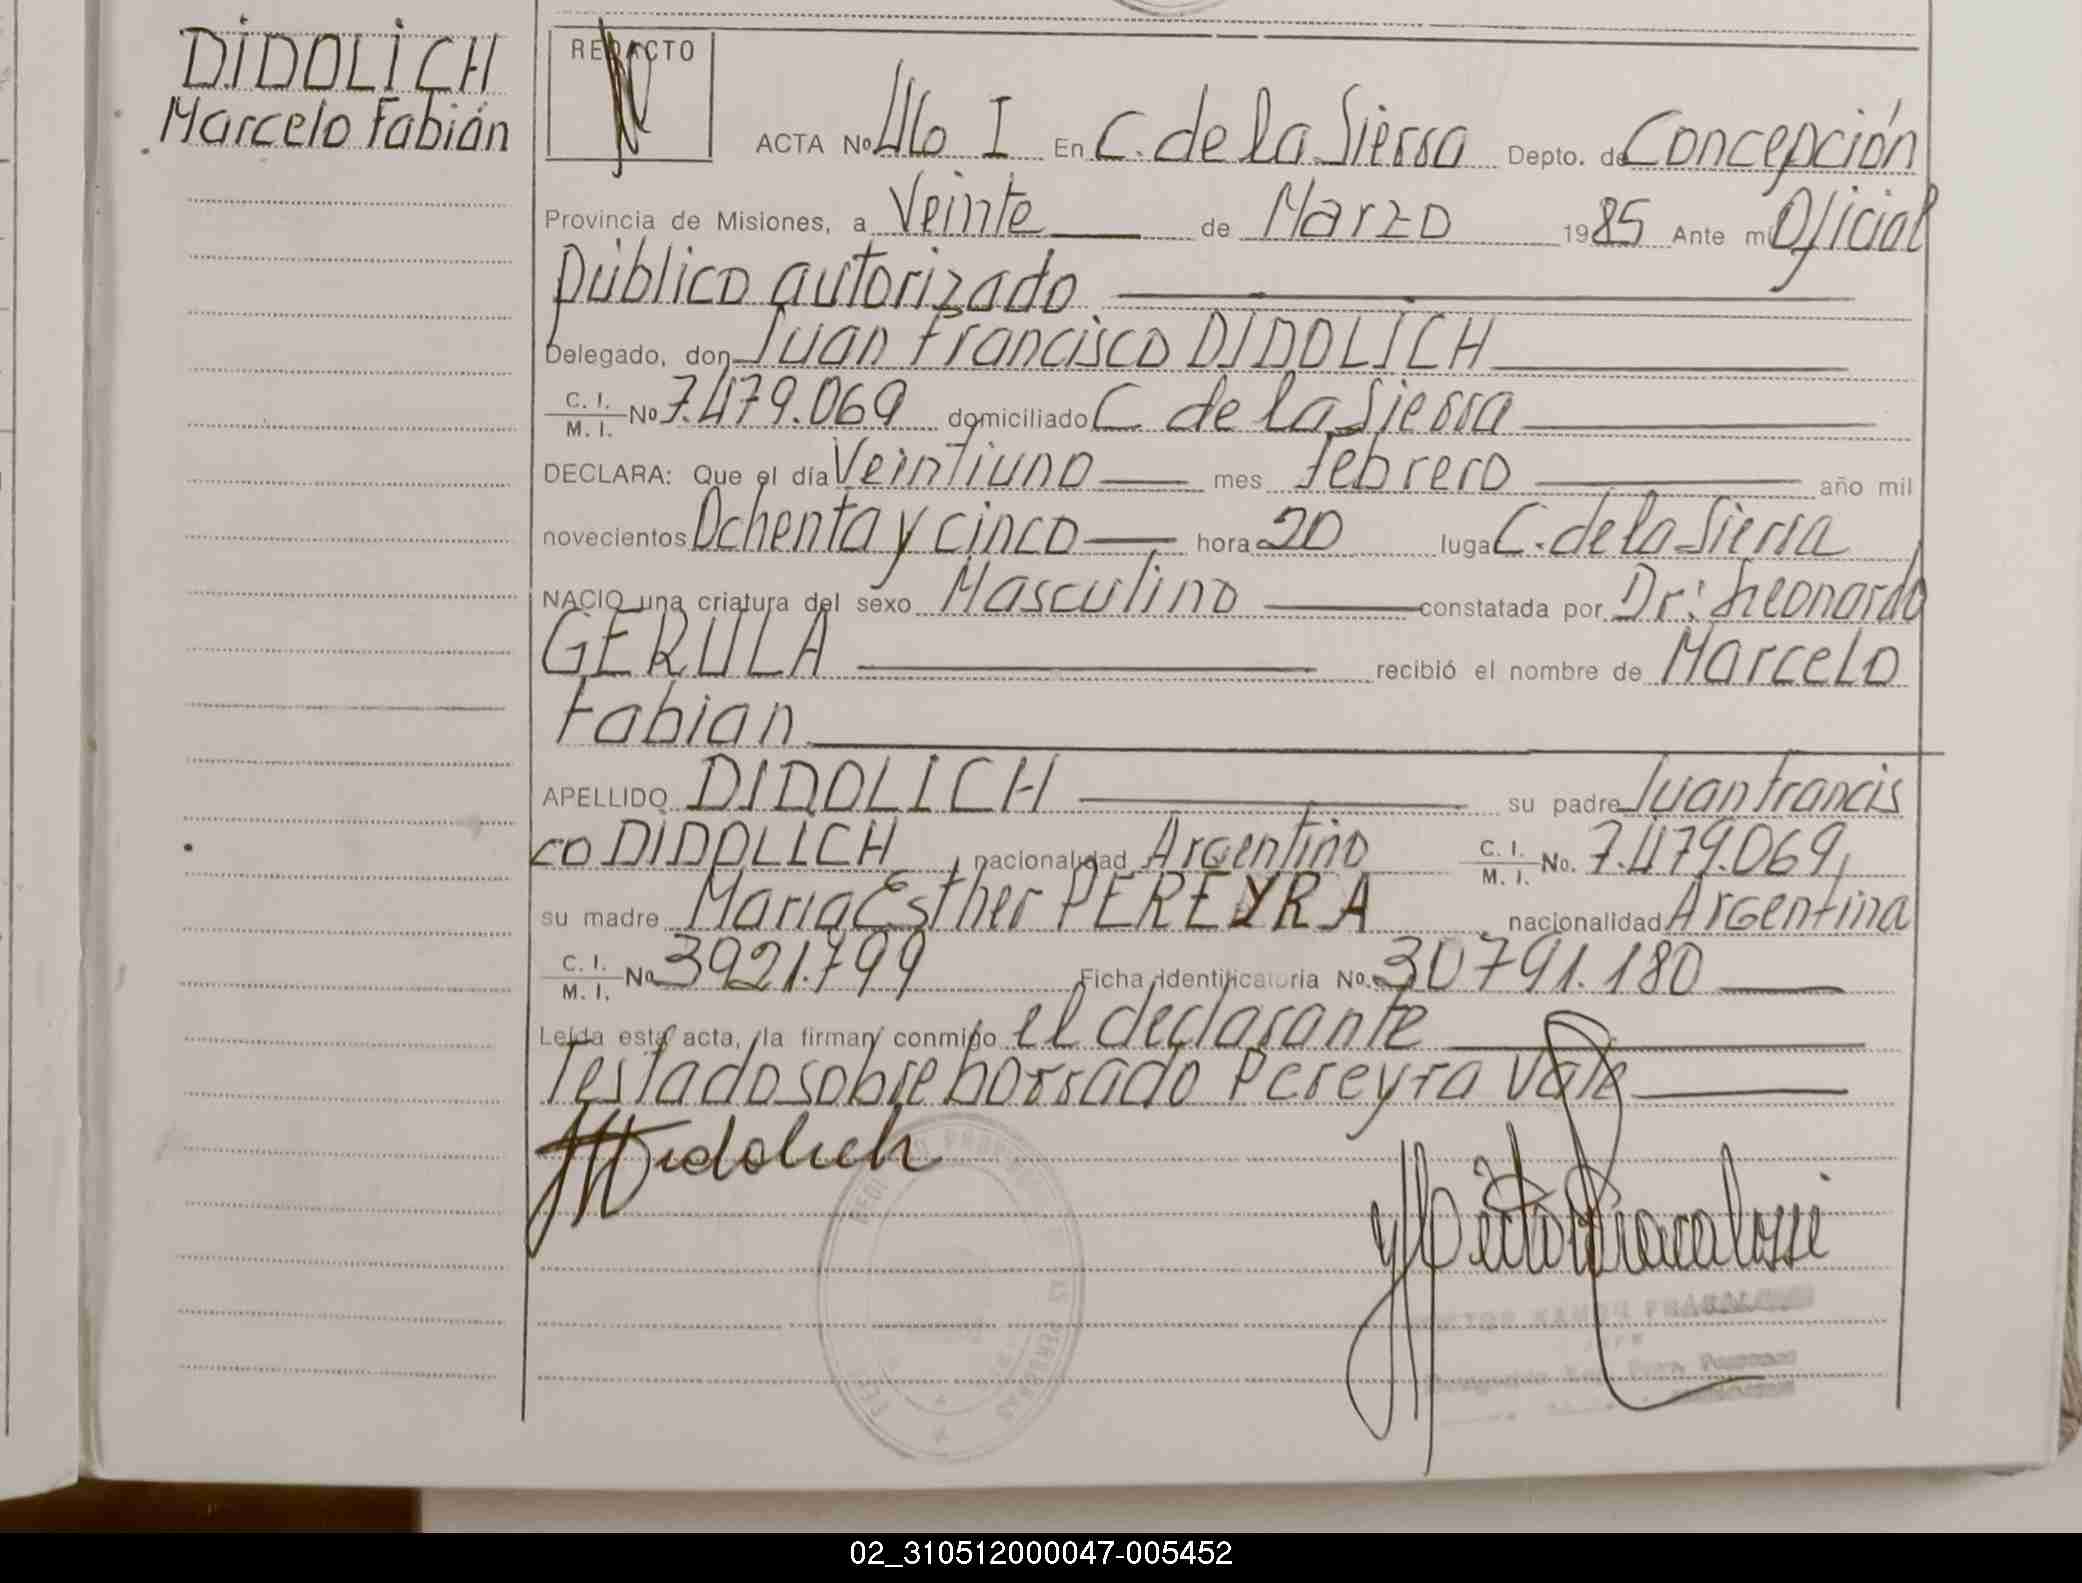 DIDOLICH
Marcelo Fabián
REDACTO
ACTA Nº 46 I En C. de la Sierra Depto. de Concepción
Provincia de Misiones, a Veinte de Marzo 1985 Ante mí Oficial
público autorizado
Delegado, don Juan Francisco DIDOLICH
C. I. / M. I. Nº 7.479.069 domiciliado C. de la Sierra
DECLARA: Que el día Veintiuno mes febrero año mil
novecientos Ochenta y cinco hora 20 luga C. de la Sierra
NACIO una criatura del sexo Masculino constatada por Dr: Leonardo
GERULA recibió el nombre de Marcelo
Fabian
APELLIDO DIDOLICH su padre Juan Francis
co DIDOLICH, nacionalidad Argentino C. I. / M. I. No. 7.479.069,
su madre Maria Esther PEREYRA, nacionalidad Argentina
C. I. / M. I. Nº 3921.799 Ficha identificatoria Nº. 30791.180
Leída esta acta, la firman conmigo el declarante
Testado sobre borrado Pereyra Vale
Didolich
02_310512000047-005452